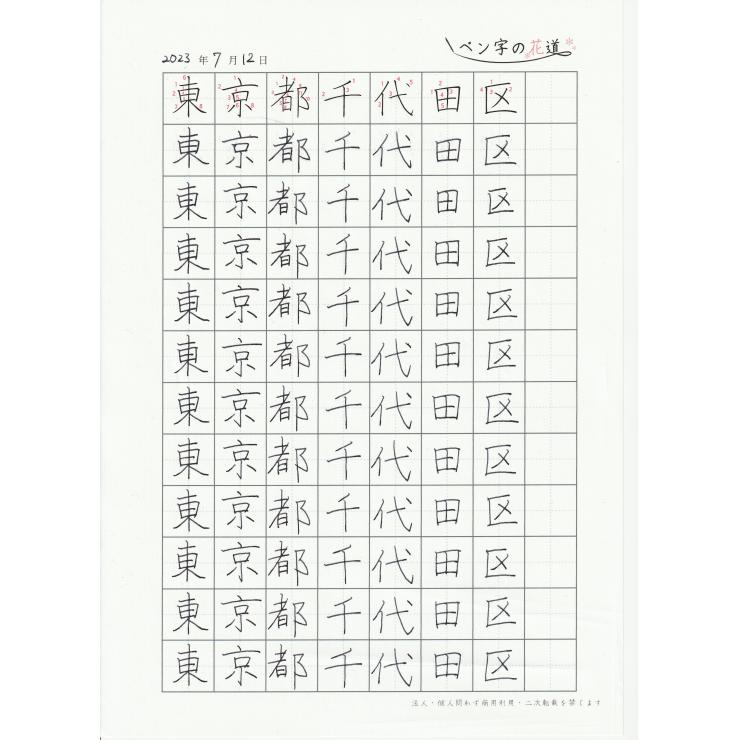 ペン字の花道
2023年7月12日
東京都千代田区
東京都千代田区
東京都千代田区
東京都千代田区
東京都千代田区
東京都千代田区
東京都千代田区
東京都千代田区
東京都千代田区
東京都千代田区
東京都千代田区
東京都千代田区
法人・個人問わず商用利用・二次転載を禁じます